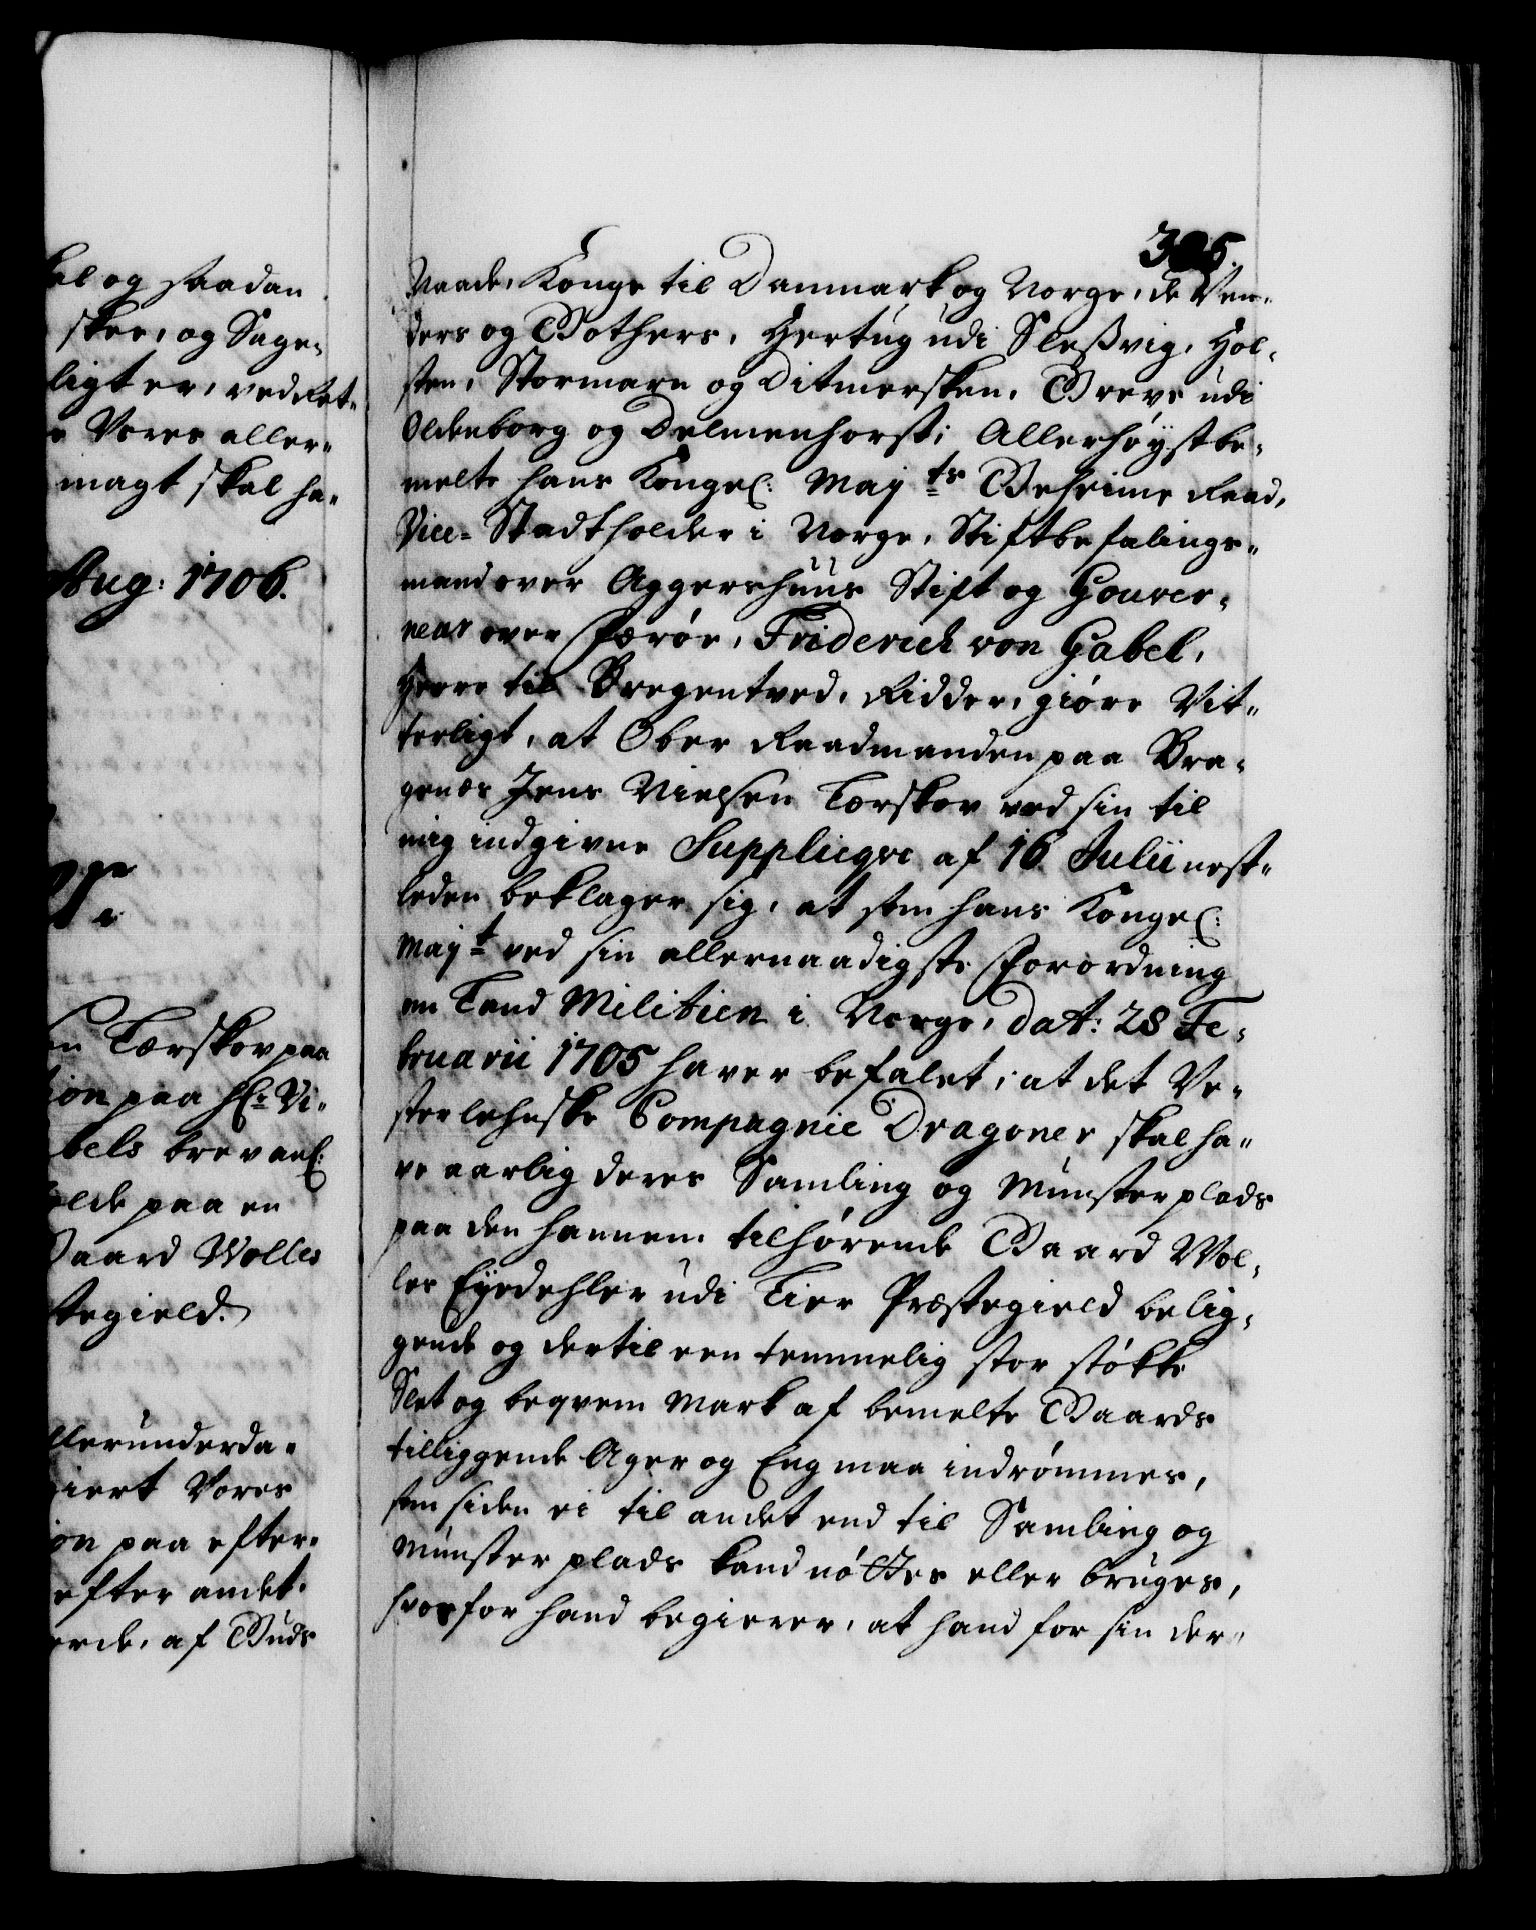 el og saadan
skee, og Sage„
ligt er, ved Ret„
e Vores aller„
magt skal ha„
Aug: 1706.
en Torskov paa
ion paa Hr: Vi„
bels brev anl:
olde paa en
Gaard Wolles
stegield.
llerunderda„
giert Vores
ion paa efter„
efter andet.
erde, af Guds
305.
Naade, Konge til Danmark og Norge, de Ven„
ders og Gothers, Hertug udi Slesvig, Hol„
sten, Stormarn og Ditmersken, Greve udi
Oldenborg og Delmenhorst; Allerhøystbe„
melte hans Kongel: May:ts Geheime Raad,
Vice-Stadtholder i Norge, Stiftbefalings„
mand over Aggershuus Stift og Gouver„
neur over Færøe, Friderich von Gabel,
Herre til Bregentved, Ridder, giøre Vit„
terligt, at Ober Raadmanden paa Bra„
genes Jens Nielsen Torskov ved sin til
mig indgivne Supplicqve af 16 Julii nest„
leden beklager sig, at som hans Kongel:
May:t ved sin allernaadigste Forordning
om Land Militien i Norge, dat: 28 Fe„
bruarii 1705 haver befalet; at det Ve„
sterlehnske Compagnie Dragoner skal ha„
ve aarlig deres Samling og Munsterplads
paa den hannem tilhørende Gaard Wol„
les Eyedehler udi Lier Præstegield belig„
gende og dertil een temmelig stor støkke
Slet og beqvem Mark af bemelte Gaards
tilliggende Ager og Eng maa indrømmes,
som siden ei til andet end til Samling og
Munster plads kand nøttes eller bruges,
hvorfor hand begierer, at hand for sin der„